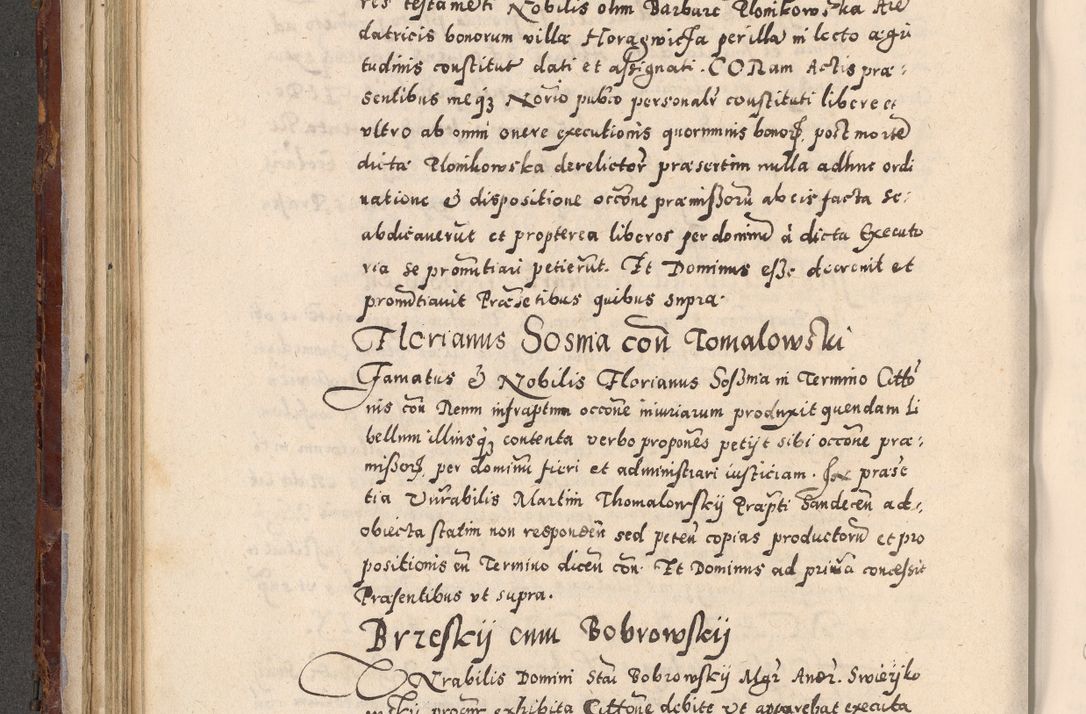 res testamēti Nobilis olim Barbare Slonikowska Are
datricis bonorum villæ Horągwicza per illā in lecto ægri
tudinis constitut dati et assignati. CORam Actis præ:
sentibus meq3 Norio pubco personalr constituti libere et
vltro ab omni onere executionis quorumuis bonor, post mortē
dictæ Slonikowska derelictor præsertim nulla adhuc ordi
natione & dispositione occōne præmißorū ab eis facta se:
abdicauerūt et propterea liberos per dominū à dicta Executo
ria se pronūtiari petierūt. Et Dominus eße decreuit et
pronūtiauit Præsētibus quibus supra.
Florianus Sosma con Tomalowski
Famatus & Nobilis Florianus Soßma in Termino Cittō
nis con Reum infraptum occōne iniuriarum produxit quendam Li
bellum illiusq3 contenta verbo proponēs petijt sibi occōne præ:
mißor, per dominū fieri et administrari iusticiam. In præsē
tia Vnrabilis Martini Thomalowskij Præpti Sandecen ad:
obiecta statim non responden sed peten copias productorū et pro
positionis en Termino dicen con. Et Dominus ad prima concessit
Præsentibus vt supra.
Brzeskij cum Bobrowskij
VNrabilis Domini Stai Bobrowskij Mgr Andr. Swieijko
wskij procur exhibita Cittōne debite vt apparebat executa